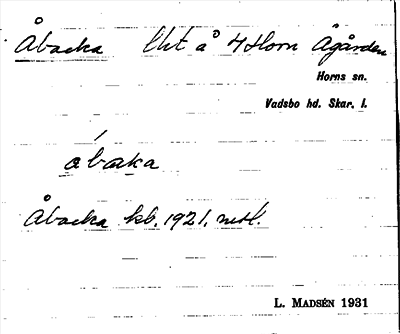 Åbacka lht å 4 Horn Ågården
Horns sn.
Vadsbo hd. Skar. l.
ábaka
Åbacka kb. 1921. mtl.
L. MADSÉN 1931